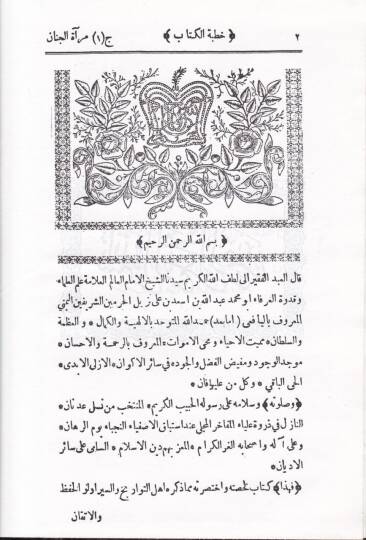 ٢ ﴿ خطبة الكتاب ﴾ ج(١) مرآة الجنان
﴿ بسم الله الرحمن الرحيم ﴾
قال العبد الفقير الى لطف الله الكريم سيدنا الشيخ الامام العالم العلامة علم العلماء
وقدوة العرفاء ابو محمد عبد الله بن اسعد بن على نزيل الحرمين الشريفين اليمنى
المعروف باليافعى (اما بعد) حمد الله المتوحد بالالهية والكمال * والعظمة
والسلطان * مميت الاحياء ومحى الاموات * المعروف بالرحمة والاحسان *
موجد الوجود ومفيض الفضل والجود * فى سائر الاكوان * الازلى الابدى *
الحى الباقى * وكل من عليها فان *
﴿وصلوته﴾ وسلامه على رسوله الحبيب الكريم * المنتخب من نسل عدنان *
النازل فى ذروة علياء المفاخر المجلى عند استباق الاصفياء النجباء يوم الرهان *
وعلى آله واصحابه الغر الكرام * المعز بهم دين الاسلام * السامى على سائر
الاديان *
﴿فهذا﴾ كتاب لخصته واختصرته مما ذكره اهل التواريخ والسير اولو الحفظ
والاتقان